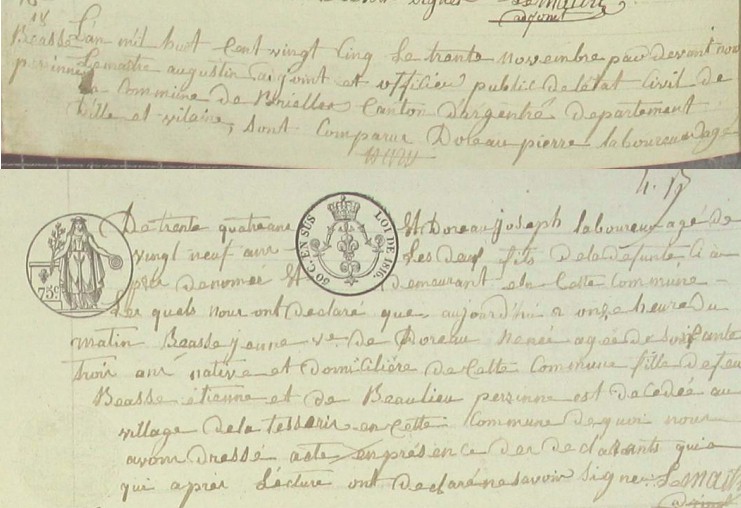 Lemaitre
adjoint
Beasse L'an mil huit cent vingt cinq le trante novembre par devant nous
perinne Lemaitre augustin adjoint et officier public de letat Civil de
la Commune de Brielles Canton d'argentré departement
dille et vilaine, sont Comparue Doreau pierre laboureur agé
4. B
De trante quatre ans Et Doreau joseph laboureux agé de
vingt neuf ans Les deux fils de la defunte Ci a
près denomée Et demeurant en Cette Commune
Les quels nous ont declaré que aujourd'hui a onze heure du
matin Beasse jenne ve. de Doreau René agée de soixante
trois ans native et domiciliére de Cette Commune fille de feu
Beasse étienne et de Beaulieu perinne est decedée au
village de la tesserie en Cette Commune de quoi nous
avons dressé acte en présence des declarants
qui apres Lecture ont declaré ne savoir signer Lemaitre
adjoint
75c
50 C. EN SUS LOI DE 1816.